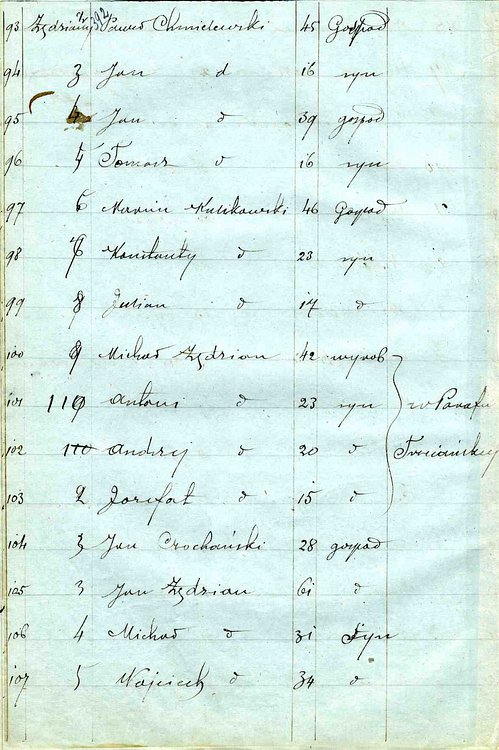 93 Zędziany 2/392 Paweł Chmielewski 45 Gospod
94 3 Jan d 16 syn
95 4 Jan d 39 gospod
96 5 Tomasz d 16 syn
97 6 Marcin Kulikowski 46 Gospod
98 Konstanty d 23 syn
99 8 Julian d 17 d
100 9 Michał Zędzian 42 wyrob
101 110 Antoni d 23 syn w Parafii
102 Andrzej d 20 d Trzciańskiej
103 2 Jozefat d 15 d
104 3 Jan Crochański 28 gospod
105 3 Jan Zędzian 61 d
106 4 Michał d 31 Syn
107 5 Wojciech d 34 d